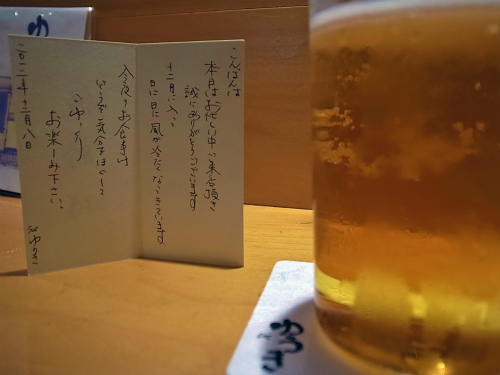 こんばんは
本日はお忙しい中ご来店頂き
誠にありがとうございます
十二月に入って
日に日に風が冷たくなってきています
今夜のお食事は
どうぞ気分ほぐして
ごゆっくり
お楽しみ下さい。
二〇一二年十二月八日
ゆうき